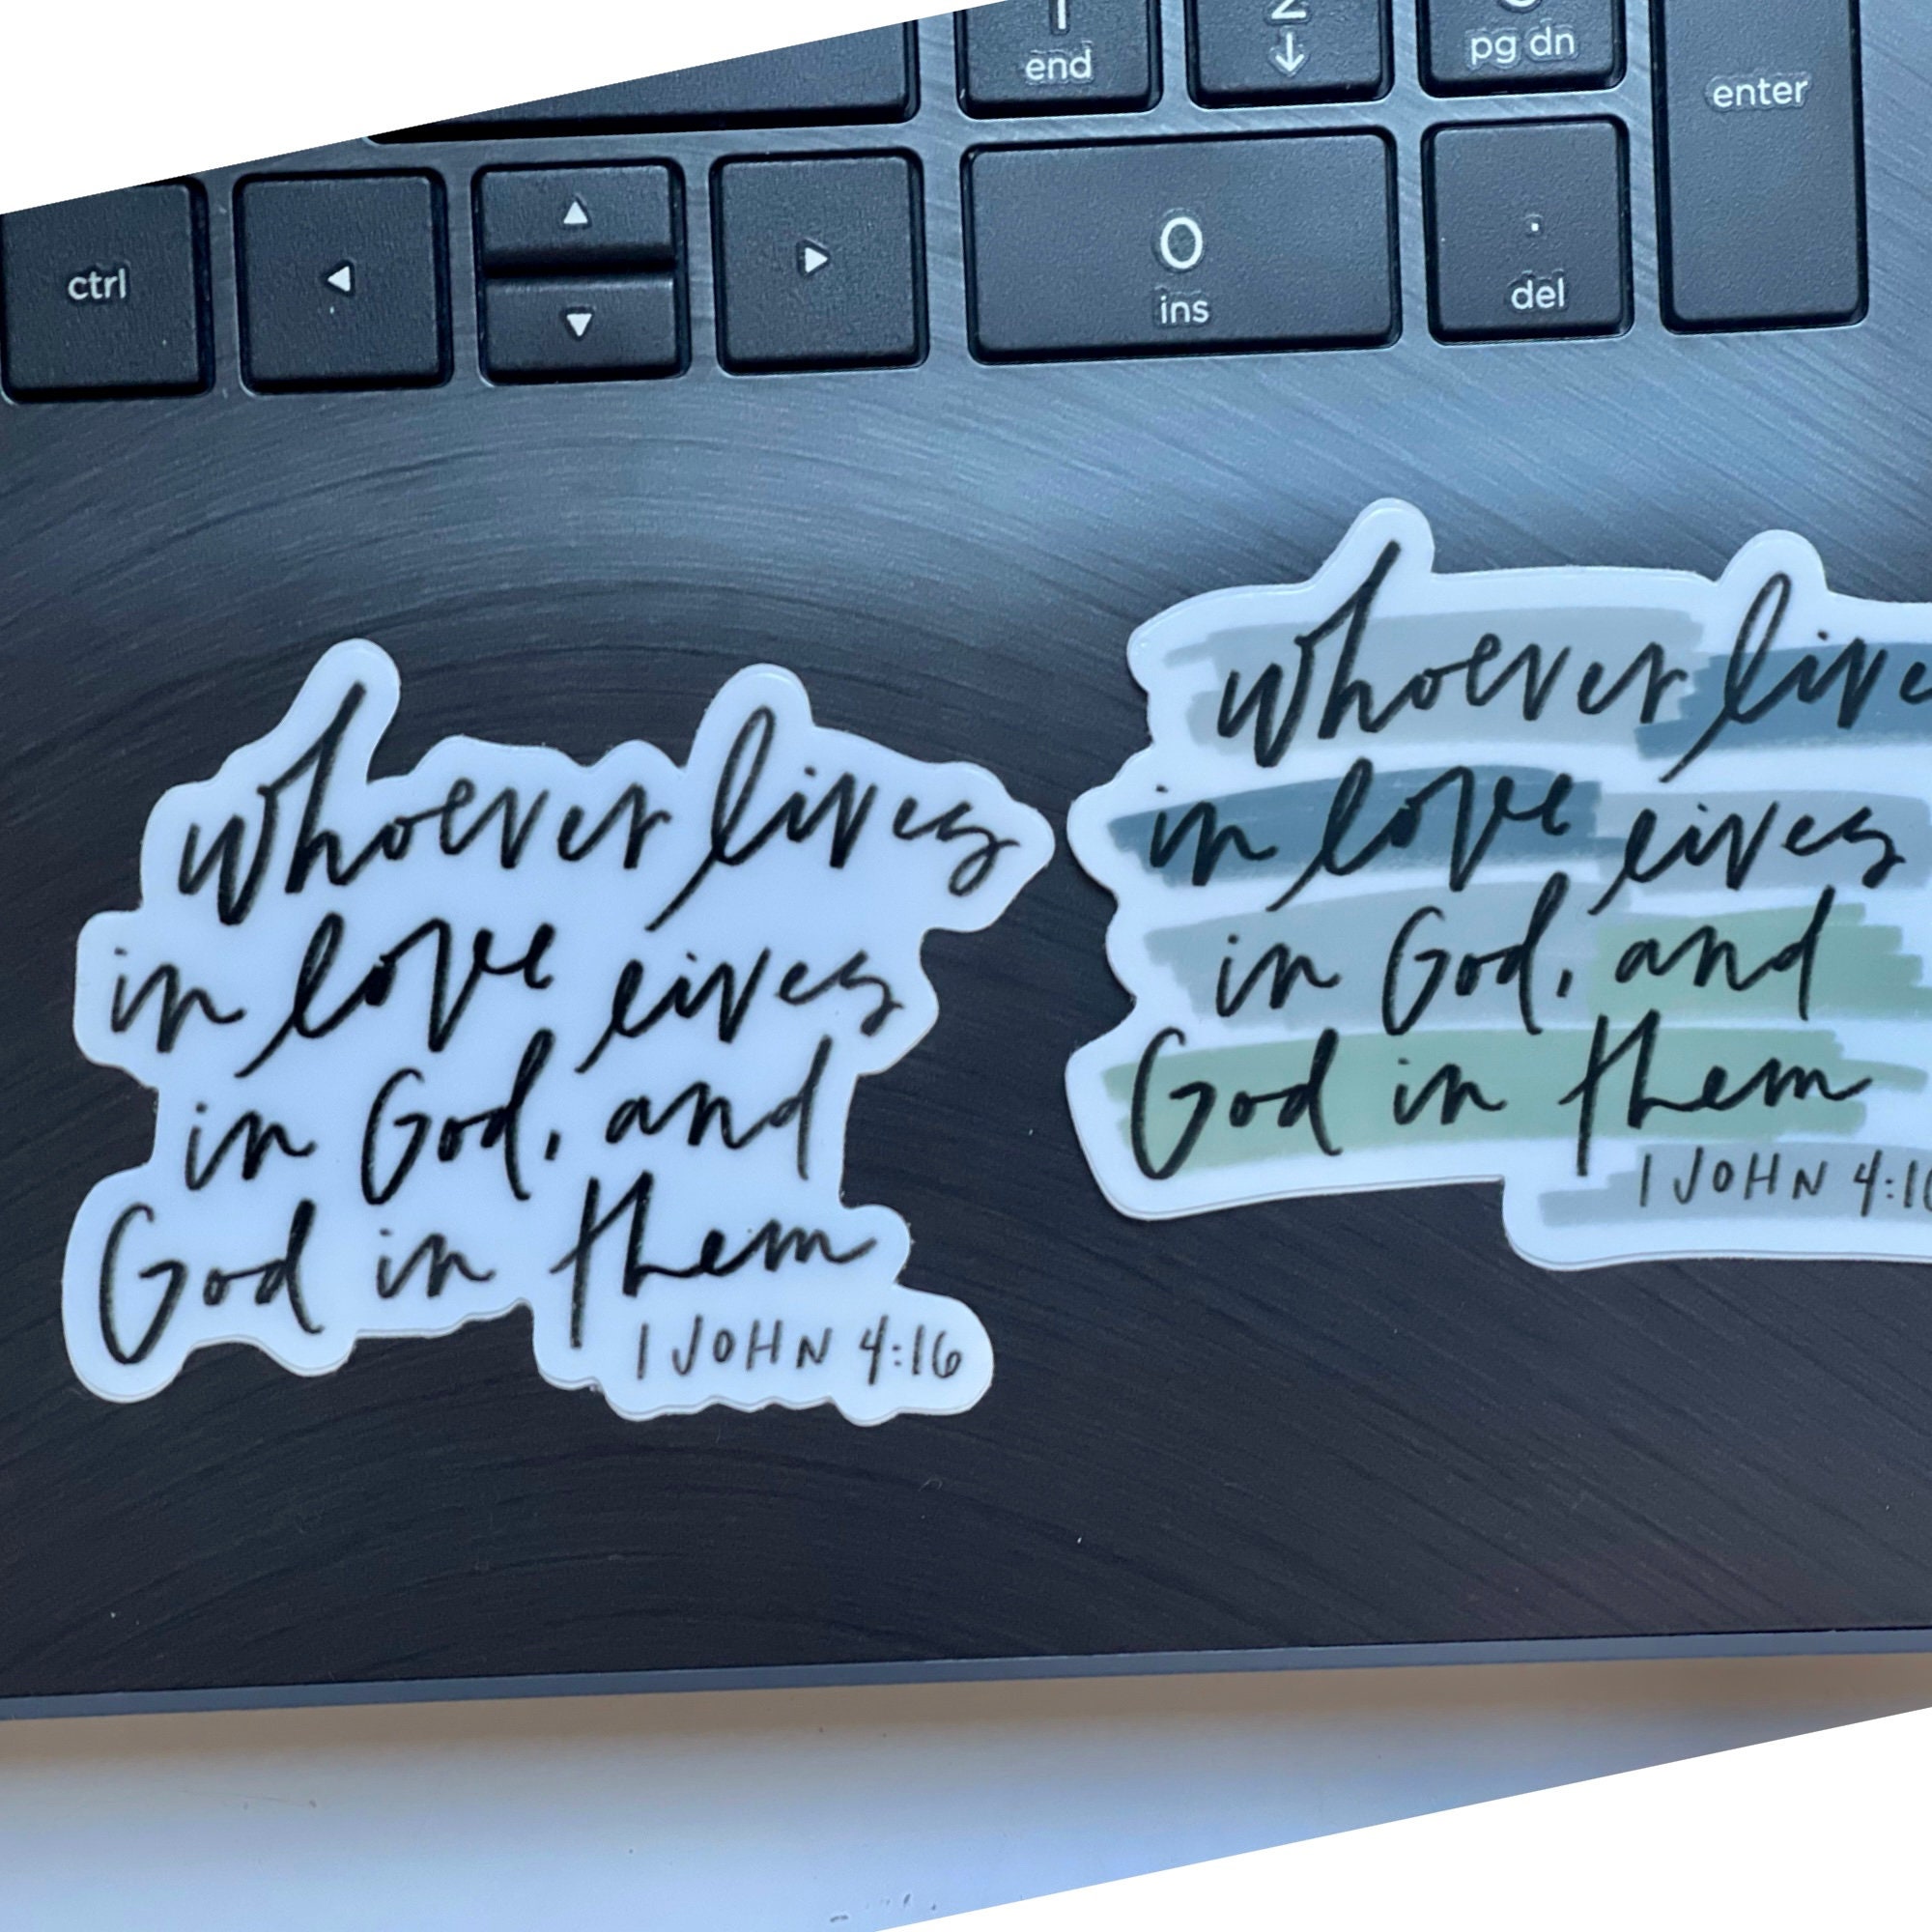 end
pg dn
enter
ctrl
0
ins
.
del
whoever lives
in love lives
in God, and
God in them
1 JOHN 4:16
whoever
in love lives
in God, and
God in them
1 JOHN